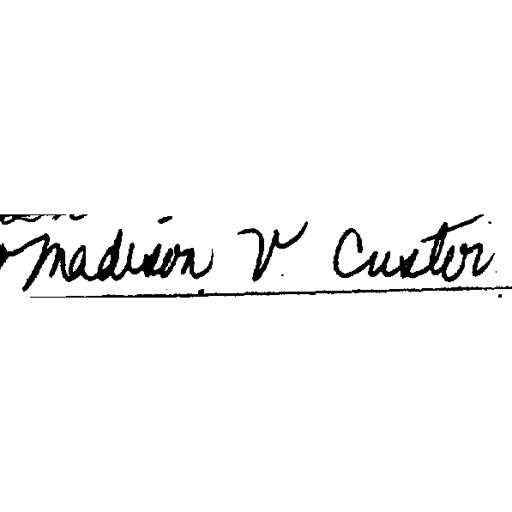 Madison V Custer